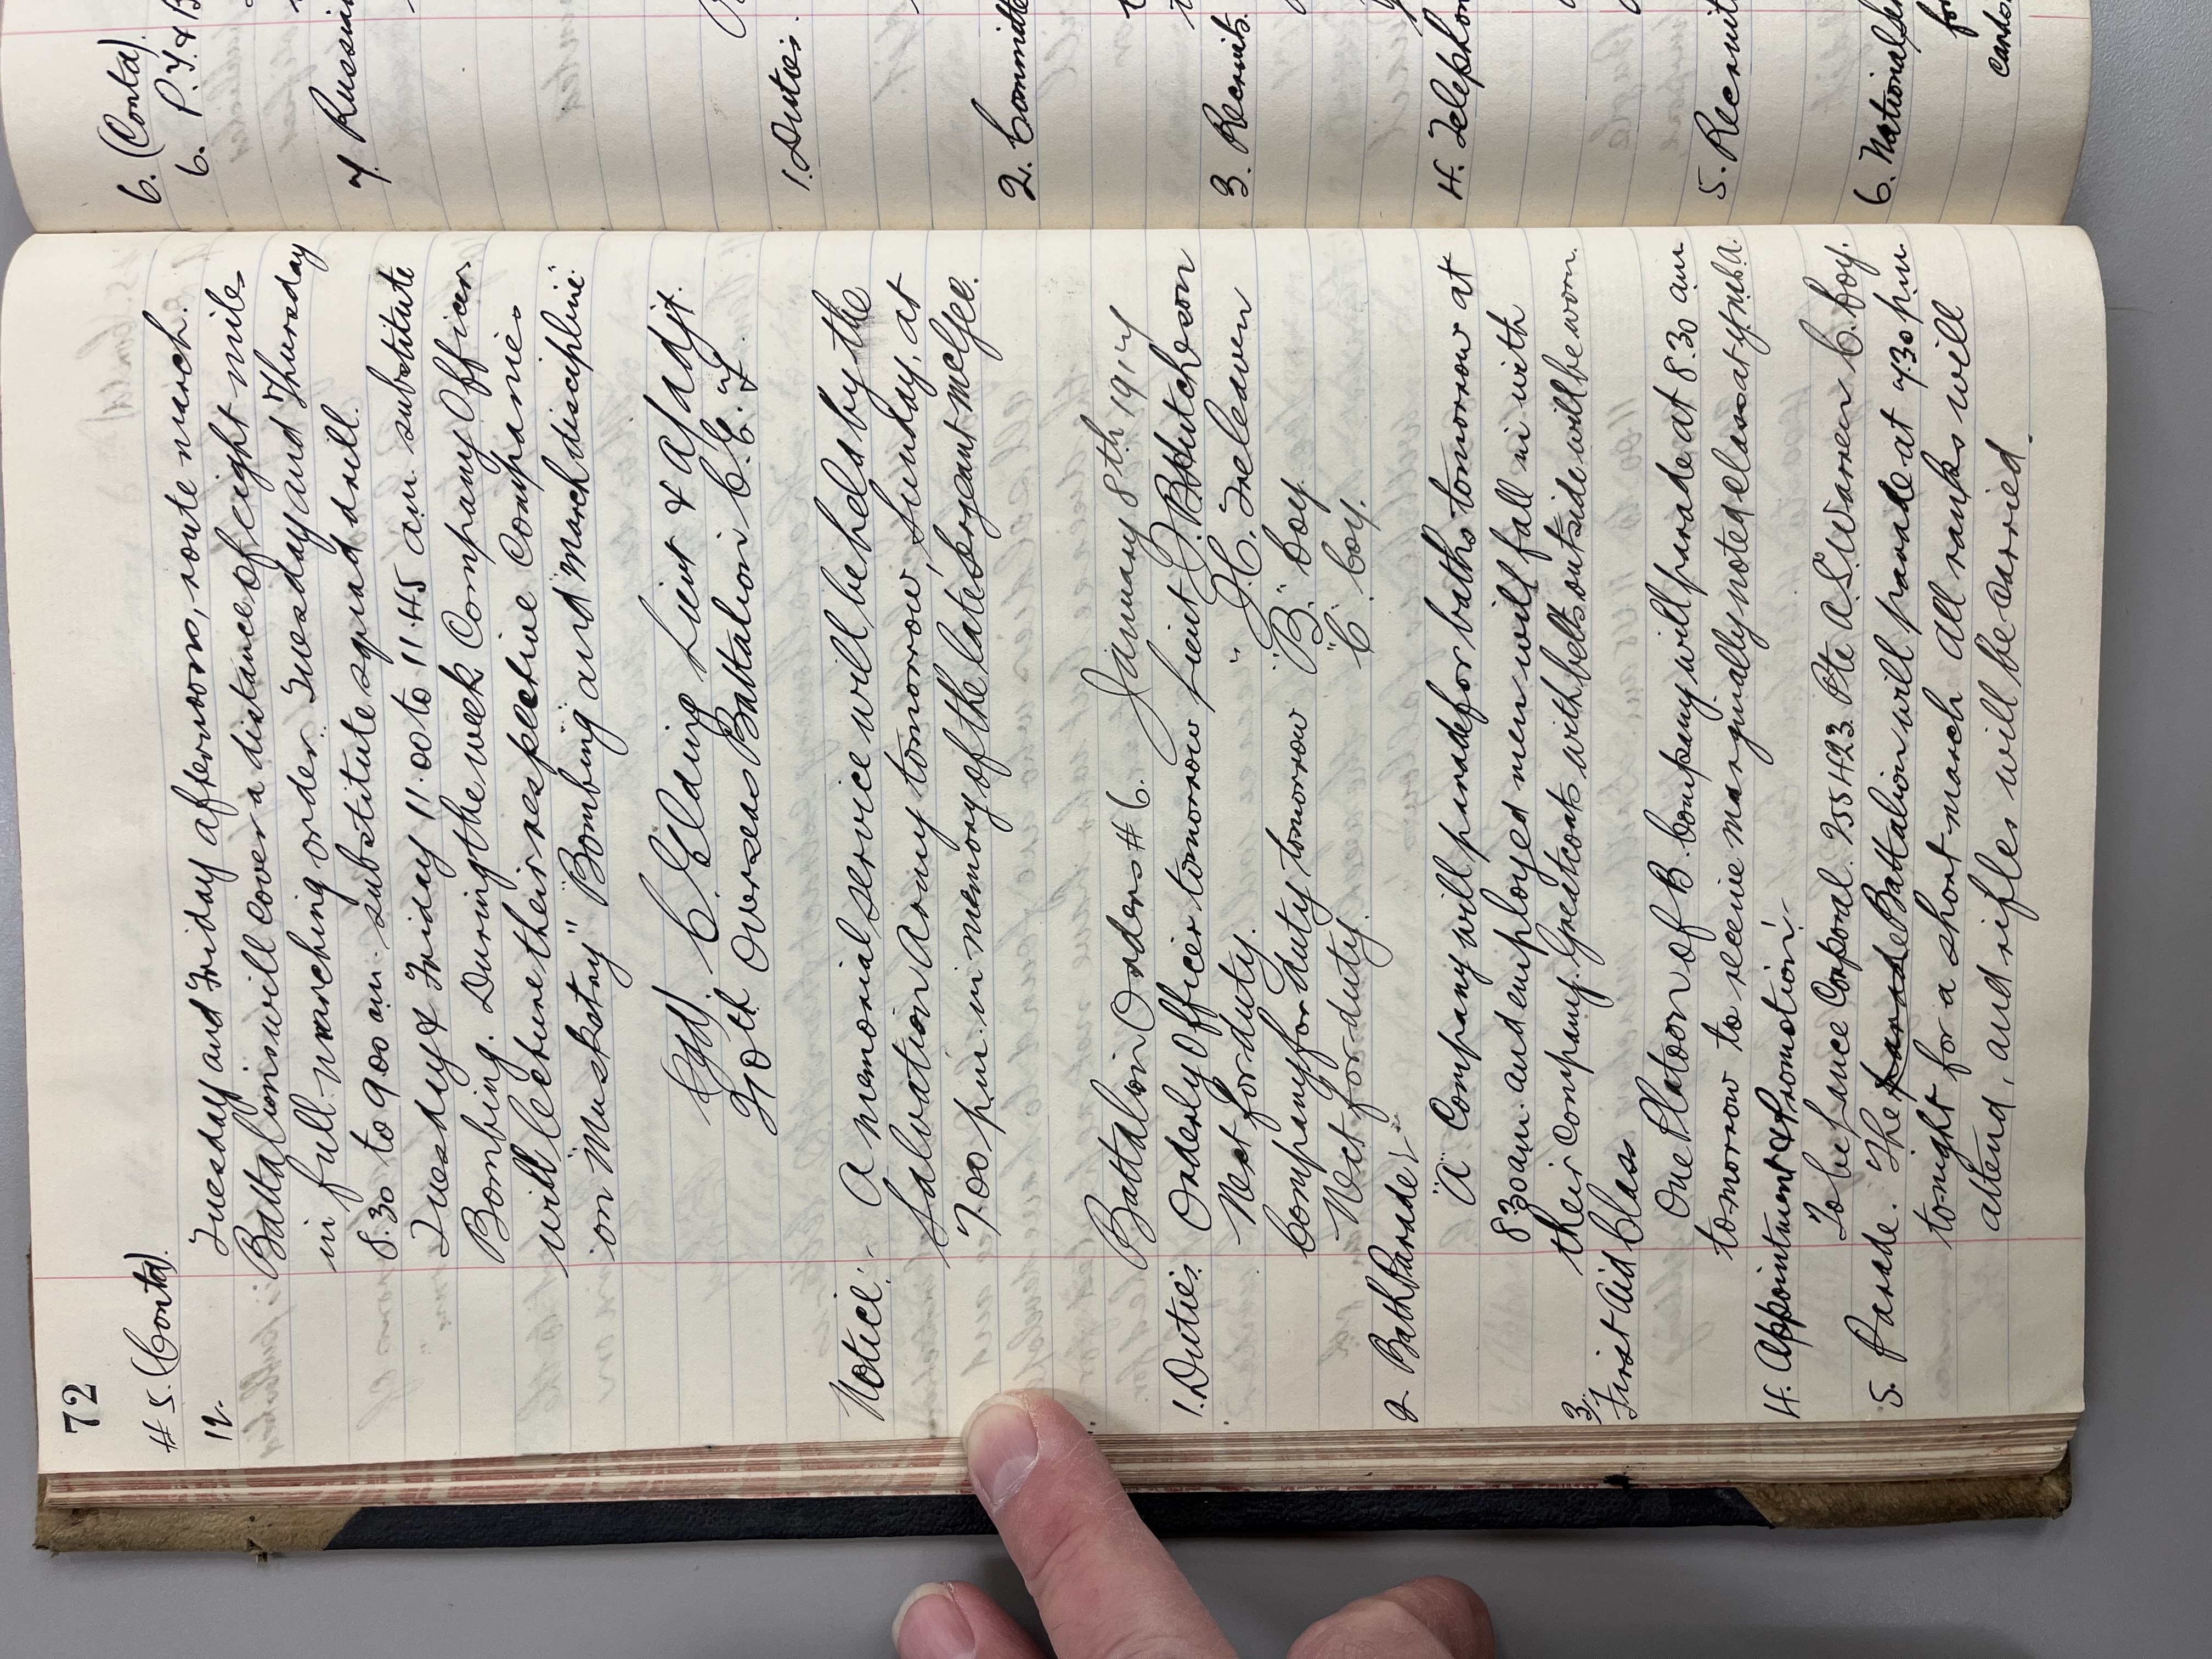 72
# 5. (Contd).
12. Tuesday and Friday afternoons, route march.
Battalions will cover a distance of eight miles
in full marching order. Tuesday and Thursday
8.30 to 9.00 am. substitute squad drill.
Tuesday & Friday 11.00 to 11.45 am substitute
Bombing. During the week Company Officers
will lecture their respective Companies
on "Musketry" "Bombing and "March discipline".
(Sgd) C. G. Laing Lieut & a/ Adjt.
210th Overseas Battalion C.E.F.
Notice:- A memorial service will be held by the
Salvation Army tomorrow, Sunday, at
7.00 pm. in memory of the late Sergeant McGee.
Battalion Orders # 6. January 8th, 1917
1. Duties. Orderly Officer tomorrow Lieut J. B. Hutcheson
Next for duty. " J. C. Treleaven
Company for Duty tomorrow "B" Coy.
Next for duty. "C. Coy.
2. Bath Parade:-
"A Company will parade for baths tomorrow at
8.30 am. and employed men will fall in with
their company. Greatcoats with belts outside will be worn.
3. First Aid Class
One Platoon of B. Company will parade at 8.30 am
tomorrow to receive marginally noted class at Y.M.C.A.
4. Appointment & Promotion:-
To be Lance Corporal. 255423. Pte A. S. Warren C. Coy.
5. Parade. The parade Battalion will parade at 7.30 pm.
tonight for a short march All ranks will
attend, and rifles will be carried.
6. (Contd).
6. P.T. & B
7. Russian
1. Duties.
2. Committe
3. Recruits.
4. Telephon
5. Recruit
6. National Se
for
cards.